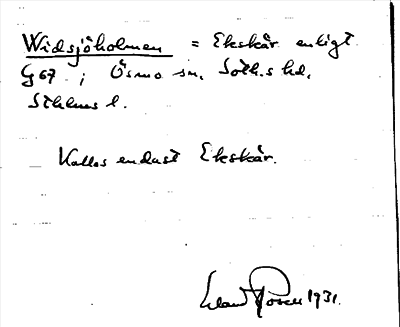 Widsjöholmen = Ekskär enligt
G67 ; Ösmo sn, Soth.s hd,
Sthlms l.
Kallas endast Ekskär.
1931.